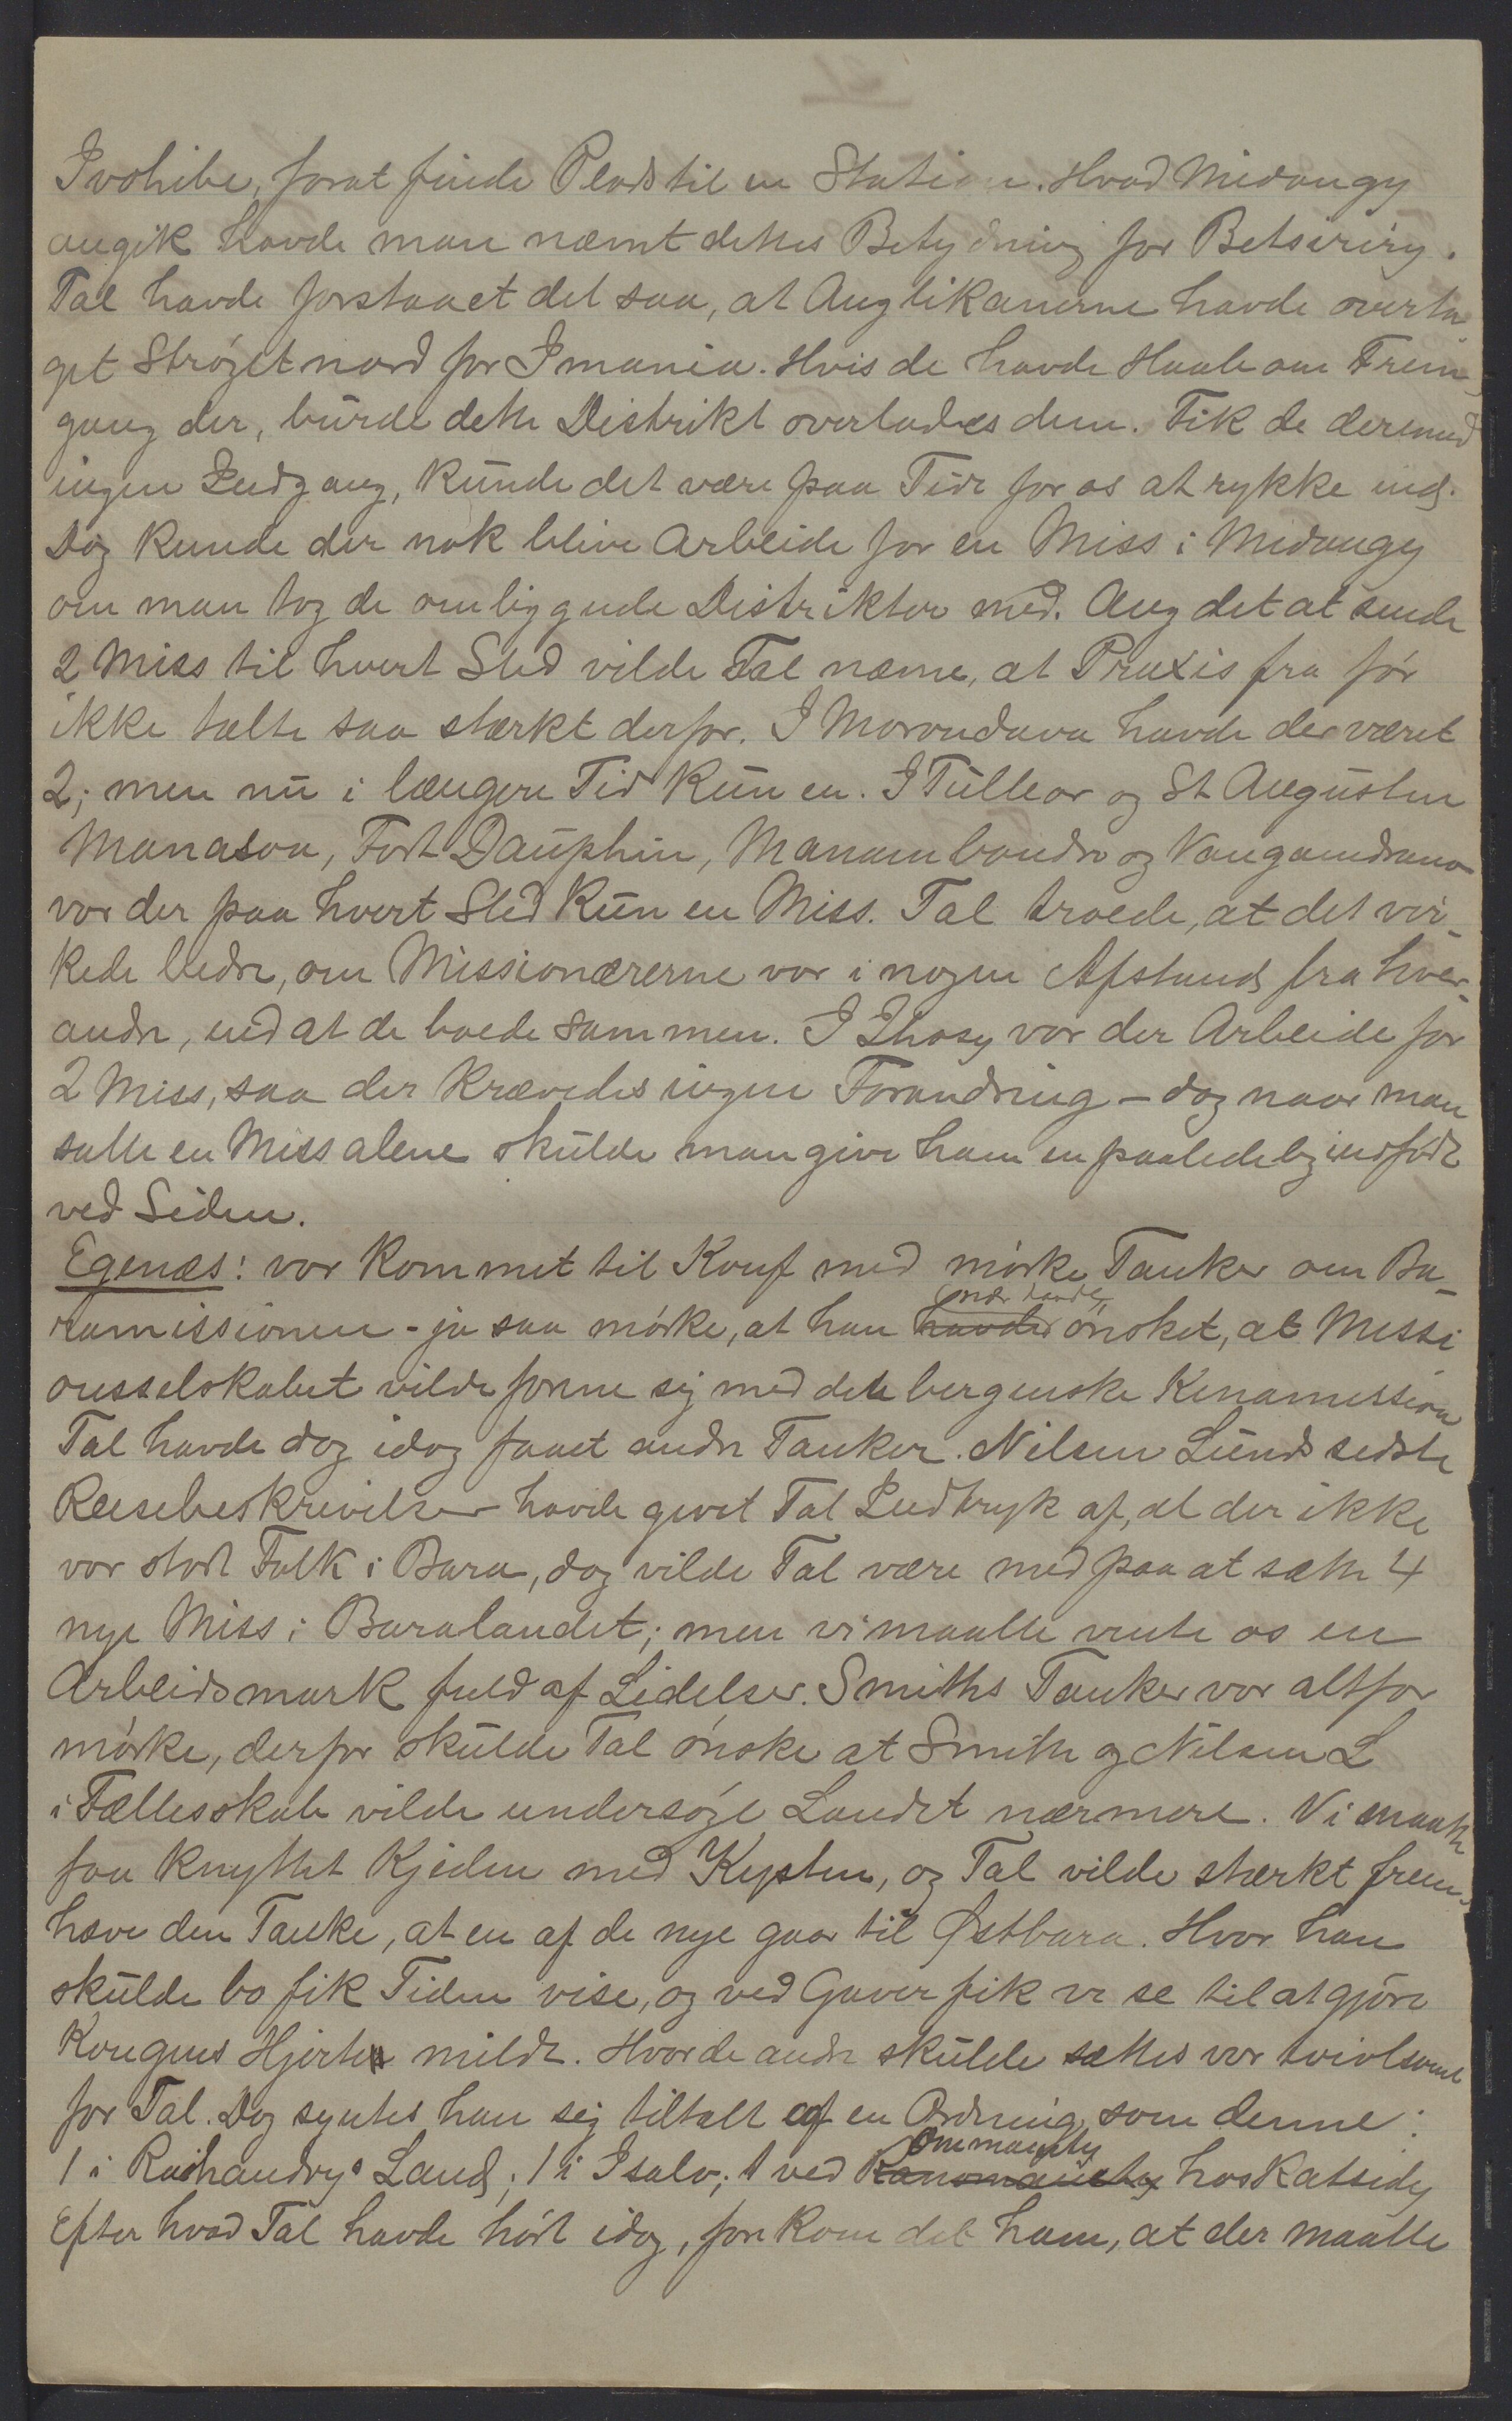 Ivohibe, forat finde Plads til en Station. Hvad Midongy
angik havde man nævnt dettes Betydning for Betsiriry.
Tal havde forstaaet det saa, at Anglikanerne havde overta
get Strøget nord for Imania. Hvis de havde Haab om Frem
gang der, burde dette Distrikt overlades dem. Fik de derimod
ingen Indgang, kunde det være paa Tide for os at rykke ind.
Dog kunde der nok blive Arbeide for en Miss i Midongy
om man tog de omliggende Distrikter med. Ang det at sende
2 Miss til hvert Sted vilde Tal nævne, at Praxis fra før
ikke talte saa stærkt derfor. I Morondava havde der været
2; men nu i længere Tid kun en. I Tullear og St Augustin
Manasoa, Fort Dauphin, Manambondro og Vangaindrano
var der paa hvert Sted kun en Miss. Tal troede, at det vir-
kede bedre, om Missionærerne var i nogen Afstand fra hver-
andre, end at de boede sammen. I Ihosy var der Arbeide for
2 Miss, saa der krævedes ingen Forandring – dog naar man
satte en Miss alene skulde man give ham en paalidelig indfødt
ved Siden.
Egenæs: var kommet til Konf med mørke Tanker om Ba-
ramissionen – ja saa mørke, at han havde ønsket, at Missi
onsselskabet vilde forene sig med den bergenske Kinamission
Tal havde dog idag faaet andre Tanker. Nilsen Lunds sidste
Reisebeskrivelser havde givet Tal Indtryk af, at der ikke
var stort Folk i Bara, dog vilde Tal være med paa at sætte 4
nye Miss i Baralandet; men vi maatte vente os en
Arbeidsmark fuld af Lidelser. Smiths Tanker var altfor
mørke, derfor skulde Tal ønske at Smith og Nilsen L
i Fællesskab vilde undersøge Landet nærmere. Vi maatte
faa knyttet Kjeden med Kysten, og Tal vilde stærkt frem-
hæve den Tanke, at en af de nye gaar til Østbara. Hvor han
skulde bo fik Tiden vise, og ved Gaver fik vi se til at gjøre
Kongens Hjerte mildt. Hvor de andre skulde sættes var tvivlsomt
for Tal. Dog syntes han sig tiltalt af en Ordning som denne:
1 i Raihandrys Land; 1 i Isalo; 1 ved Ommanely hos Katsidy
Efter hvad Tal havde hørt idag, forekom det ham, at der maatte